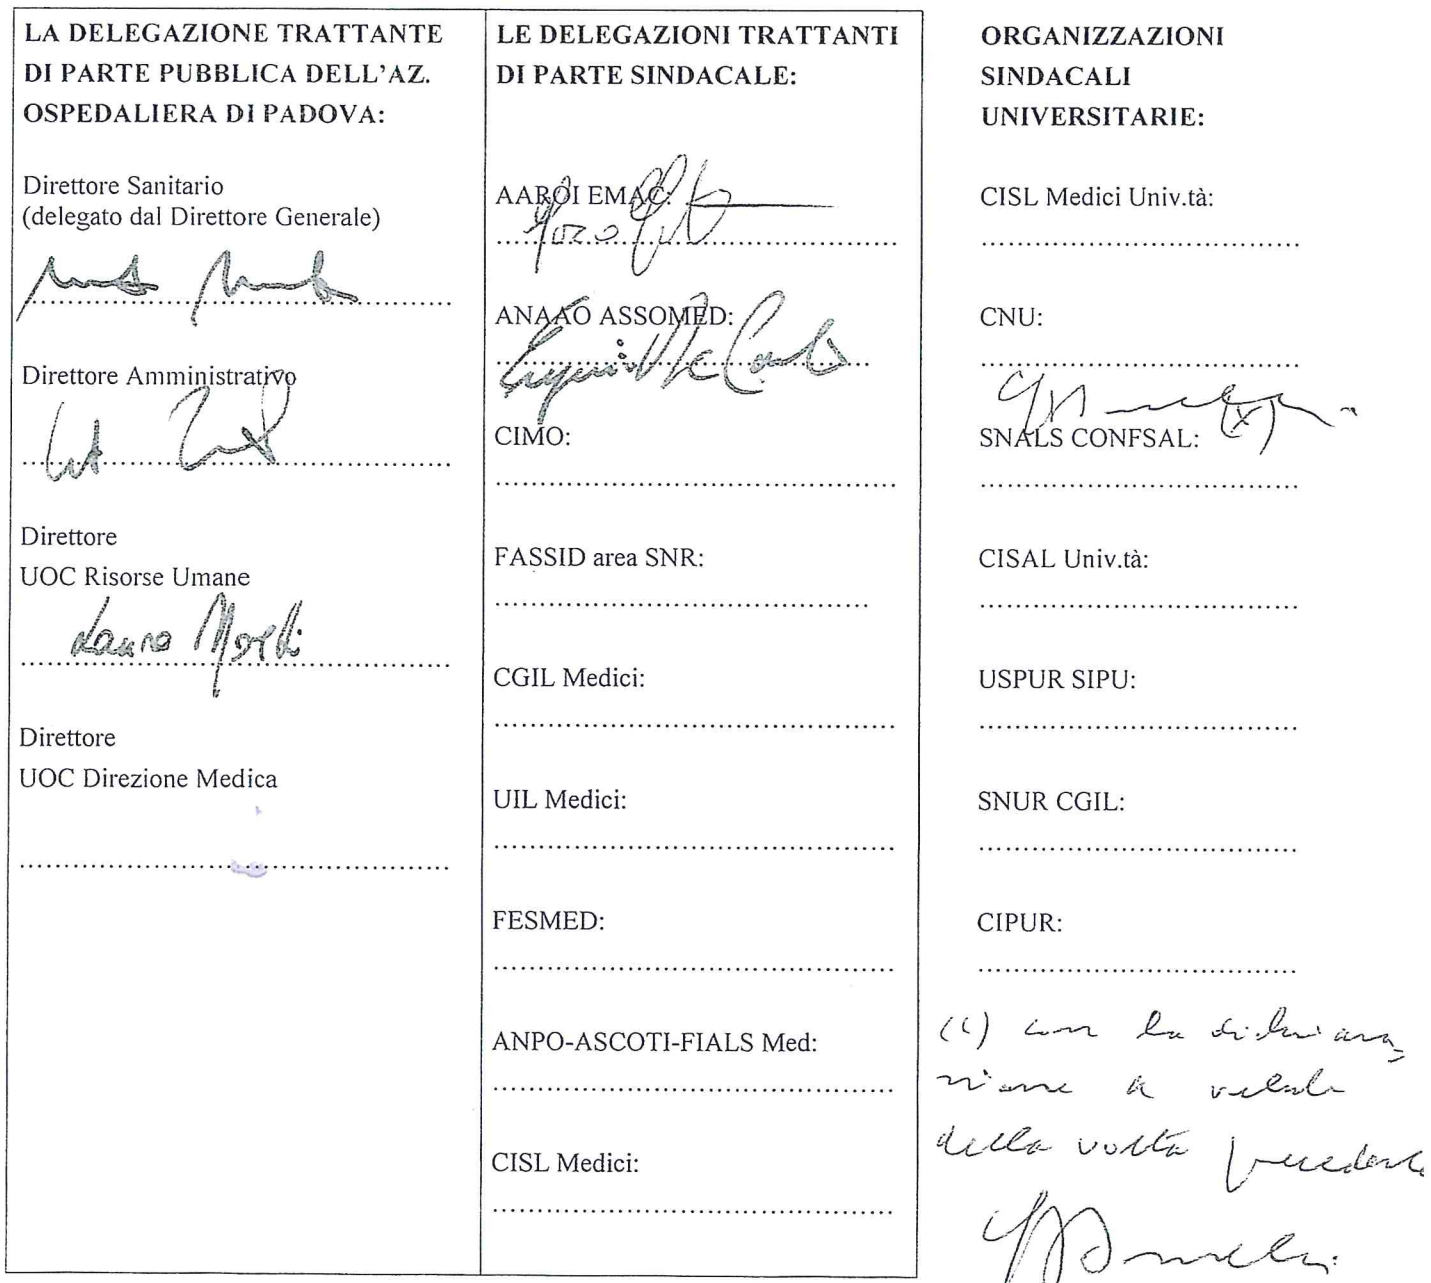 LA DELEGAZIONE TRATTANTE
DI PARTE PUBBLICA DELL'AZ.
OSPEDALIERA DI PADOVA:
Direttore Sanitario
(delegato dal Direttore Generale)
Direttore Amministrativo
Direttore
UOC Risorse Umane
Laura
Direttore
UOC Direzione Medica
LE DELEGAZIONI TRATTANTI
DI PARTE SINDACALE:
AAROI EMAC:
ANAAO ASSOMED:
CIMO:
FASSID area SNR:
CGIL Medici:
UIL Medici:
FESMED:
ANPO-ASCOTI-FIALS Med:
CISL Medici:
ORGANIZZAZIONI
SINDACALI
UNIVERSITARIE:
CISL Medici Univ.tà:
CNU:
SNALS CONFSAL:
CISAL Univ.tà:
USPUR SIPU:
SNUR CGIL:
CIPUR:
con la dichiara
zione a verbale
della volta precedente